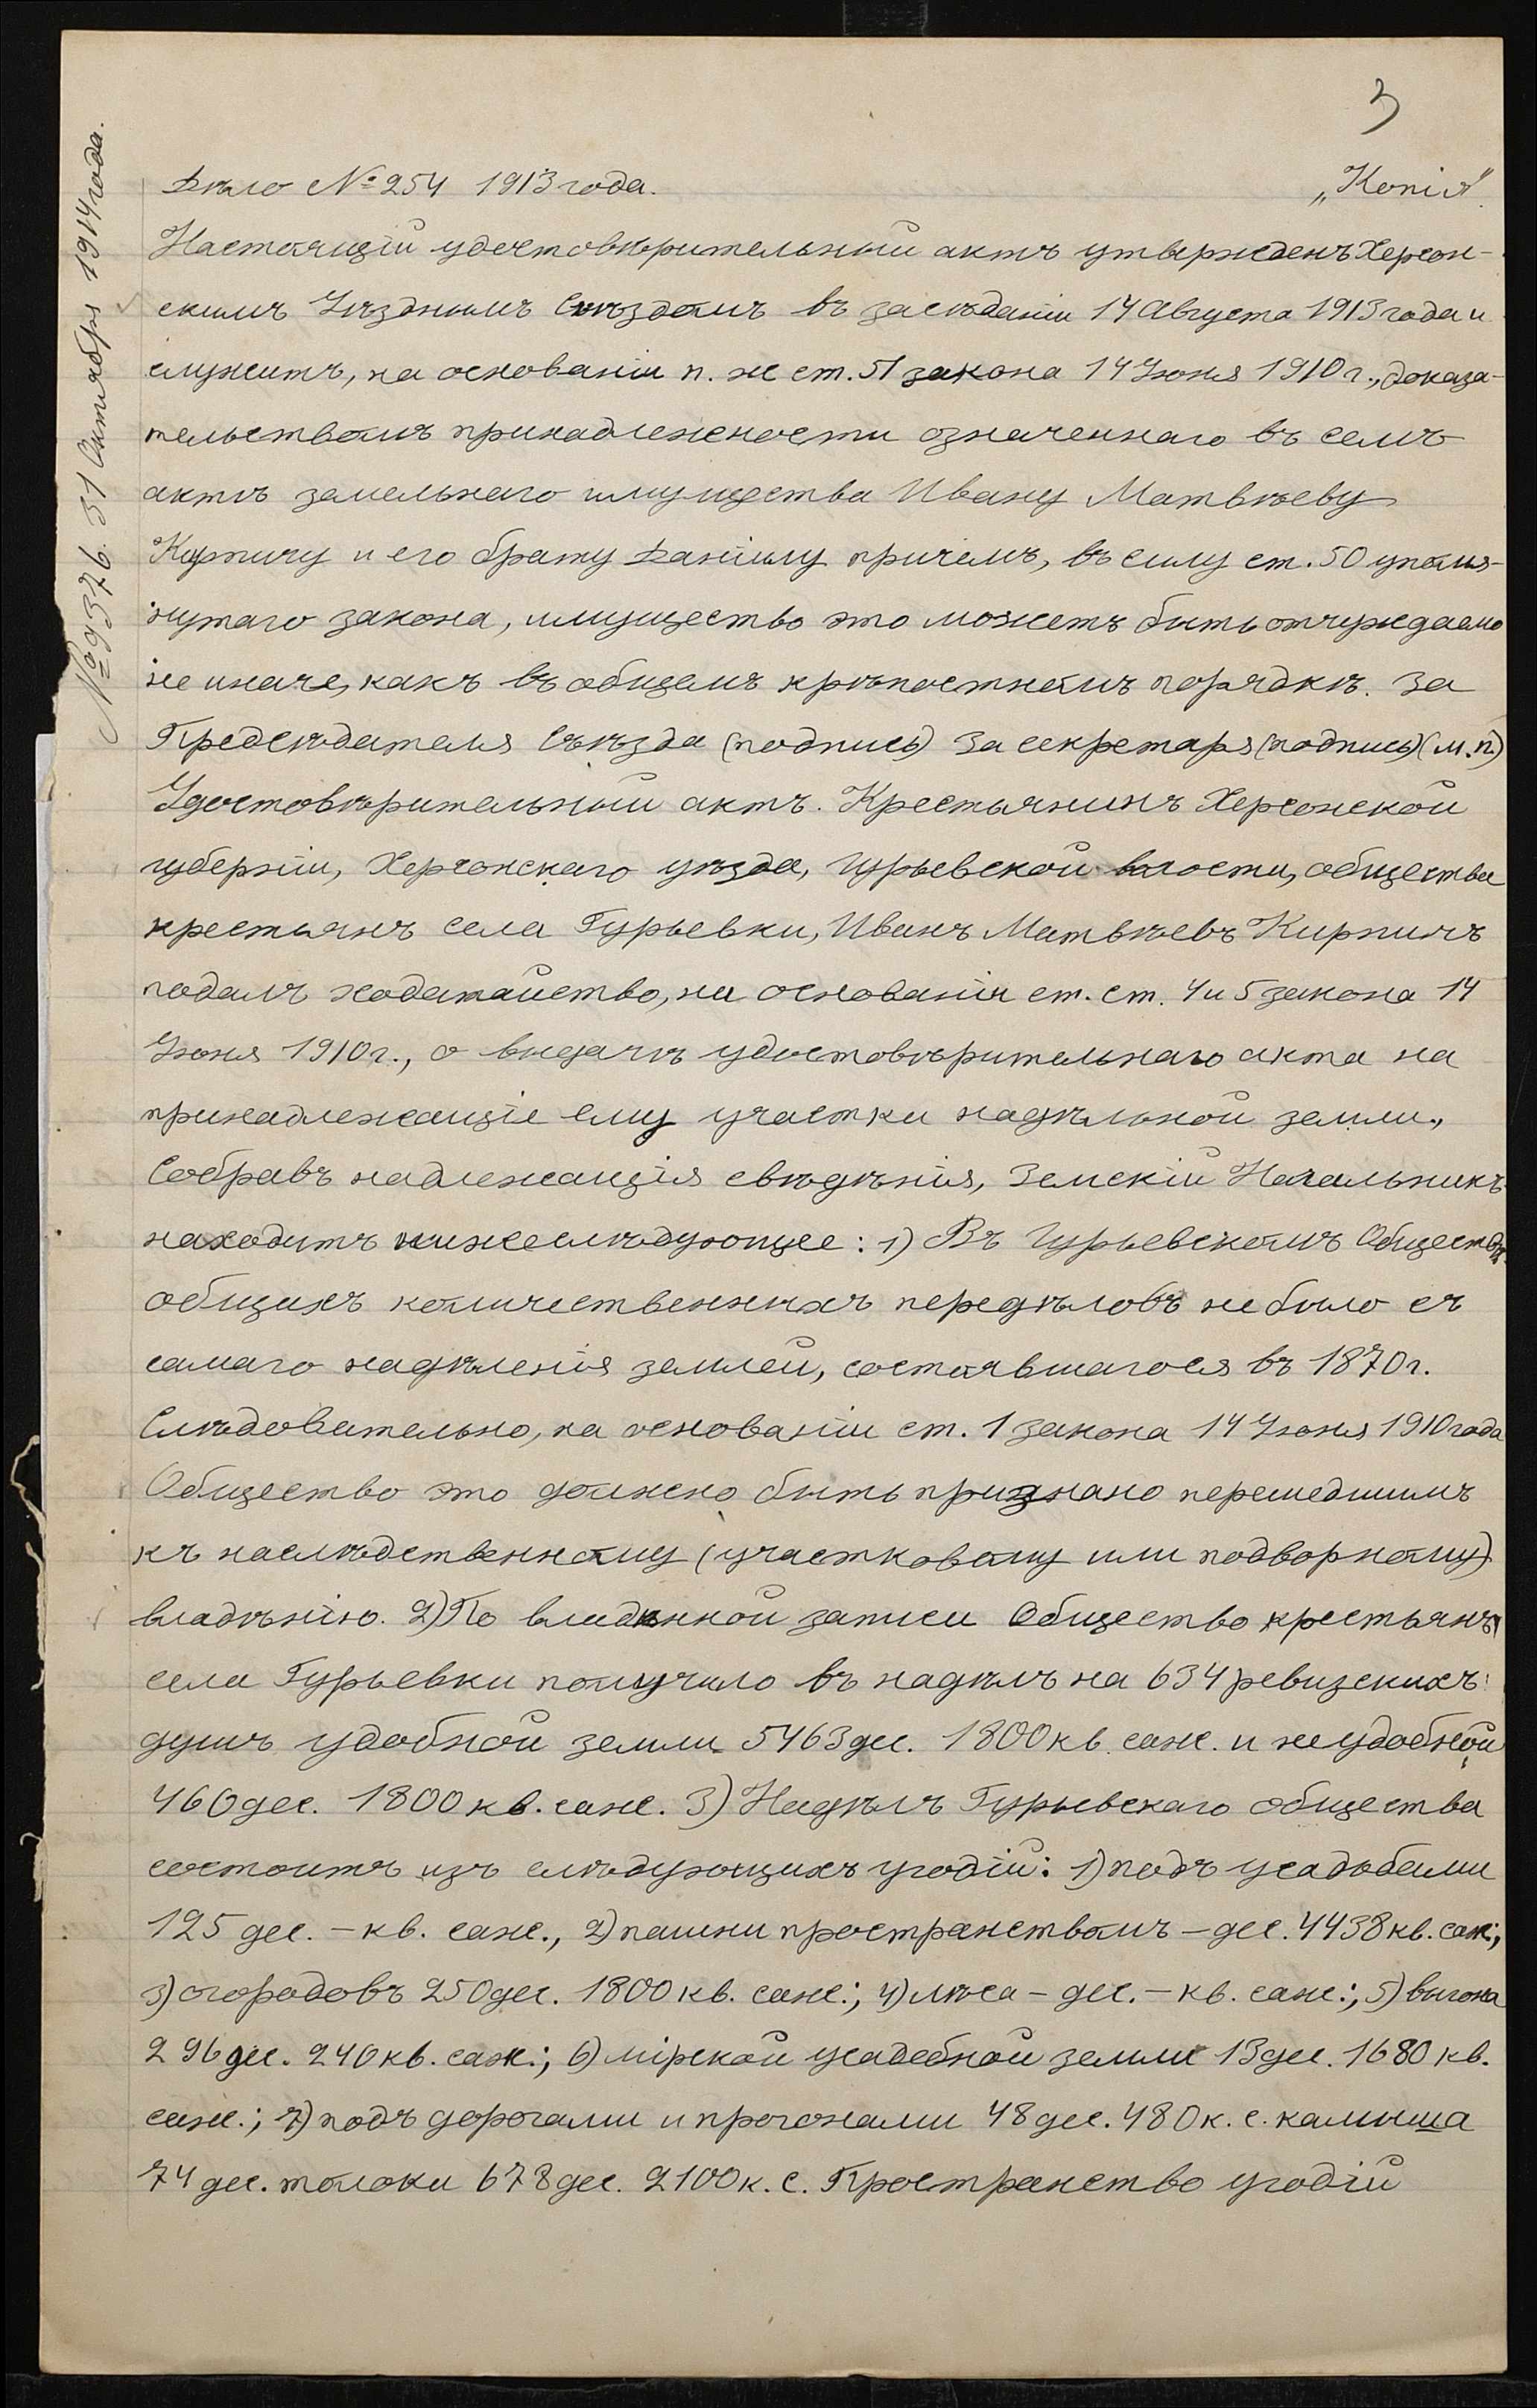 3
№ 9376. 31 Октября 1914 года.
Дѣло № 254 1913 года. „Копія"
Настоящій удостовѣрительный актъ утвержденъ Херсон-
скимъ Уѣзднымъ Съѣздомъ въ засѣданіи 14 Августа 1913 года и
служитъ, на основаніи п. ж ст. 51 закона 14 Іюня 1910 г., доказа-
тельствомъ принадлежности означеннаго въ семъ
актѣ земельнаго имущества Ивану Матвѣеву
Кирпичу и его брату Даніилу причемъ, въ силу ст. 50 упомя-
нутаго закона, имущество это можетъ быть отчуждаемо
не иначе, какъ въ общемъ крѣпостномъ порядкѣ. За
Предсѣдателя Съѣзда (подпись) За секретаря (подпись) (м.п.)
Удостовѣрительный актъ. Крестьянинъ Херсонской
губерніи, Херсонскаго уѣзда, Гурьевской волости, общества
крестьянъ села Гурьевки, Иванъ Матвѣевъ Кирпичъ
подалъ ходатайство, на основаніи ст. ст. 4 и 5 закона 14
Іюня 1910 г., о выдачѣ удостовѣрительнаго акта на
принадлежащіе ему участки надѣльной земли.,
Собравъ надлежащія свѣдѣнія, Земскій Начальникъ
находитъ нижеслѣдующее: 1) Въ Гурьевскомъ Обществѣ
общихъ количественныхъ передѣловъ не было съ
самаго надѣленія землей, состоявшагося въ 1870 г.
Слѣдовательно, на основаніи ст. 1 закона 14 Іюня 1910 года
Общество это должно быть признано перешедшимъ
къ наслѣдственному (участковому или подворному)
владѣнію. 2) По владѣнной записи Общество крестьянъ
села Гурьевки получило въ надѣлъ на 634 ревизскихъ
душъ удобной земли 5463 дес. 1800 кв. саж. и неудобной
460 дес. 1800 кв. саж. 3) Надѣлъ Гурьевскаго общества
состоитъ изъ слѣдующихъ угодій: 1) подъ усадьбами
125 дес. – кв. саж., 2) пашни пространствомъ – дес. 4438 кв. саж.;
3) огородовъ 250 дес. 1800 кв. саж.; 4) лѣса – дес. – кв. саж.; 5) выгона
296 дес. 240 кв. саж.; 6) мірской усадебной земли 13 дес. 1680 кв.
саж.; 7) подъ дорогами и прогонами 48 дес. 480 к. с. камыша
74 дес. толоки 678 дес. 2100 к. с. Пространство угодій